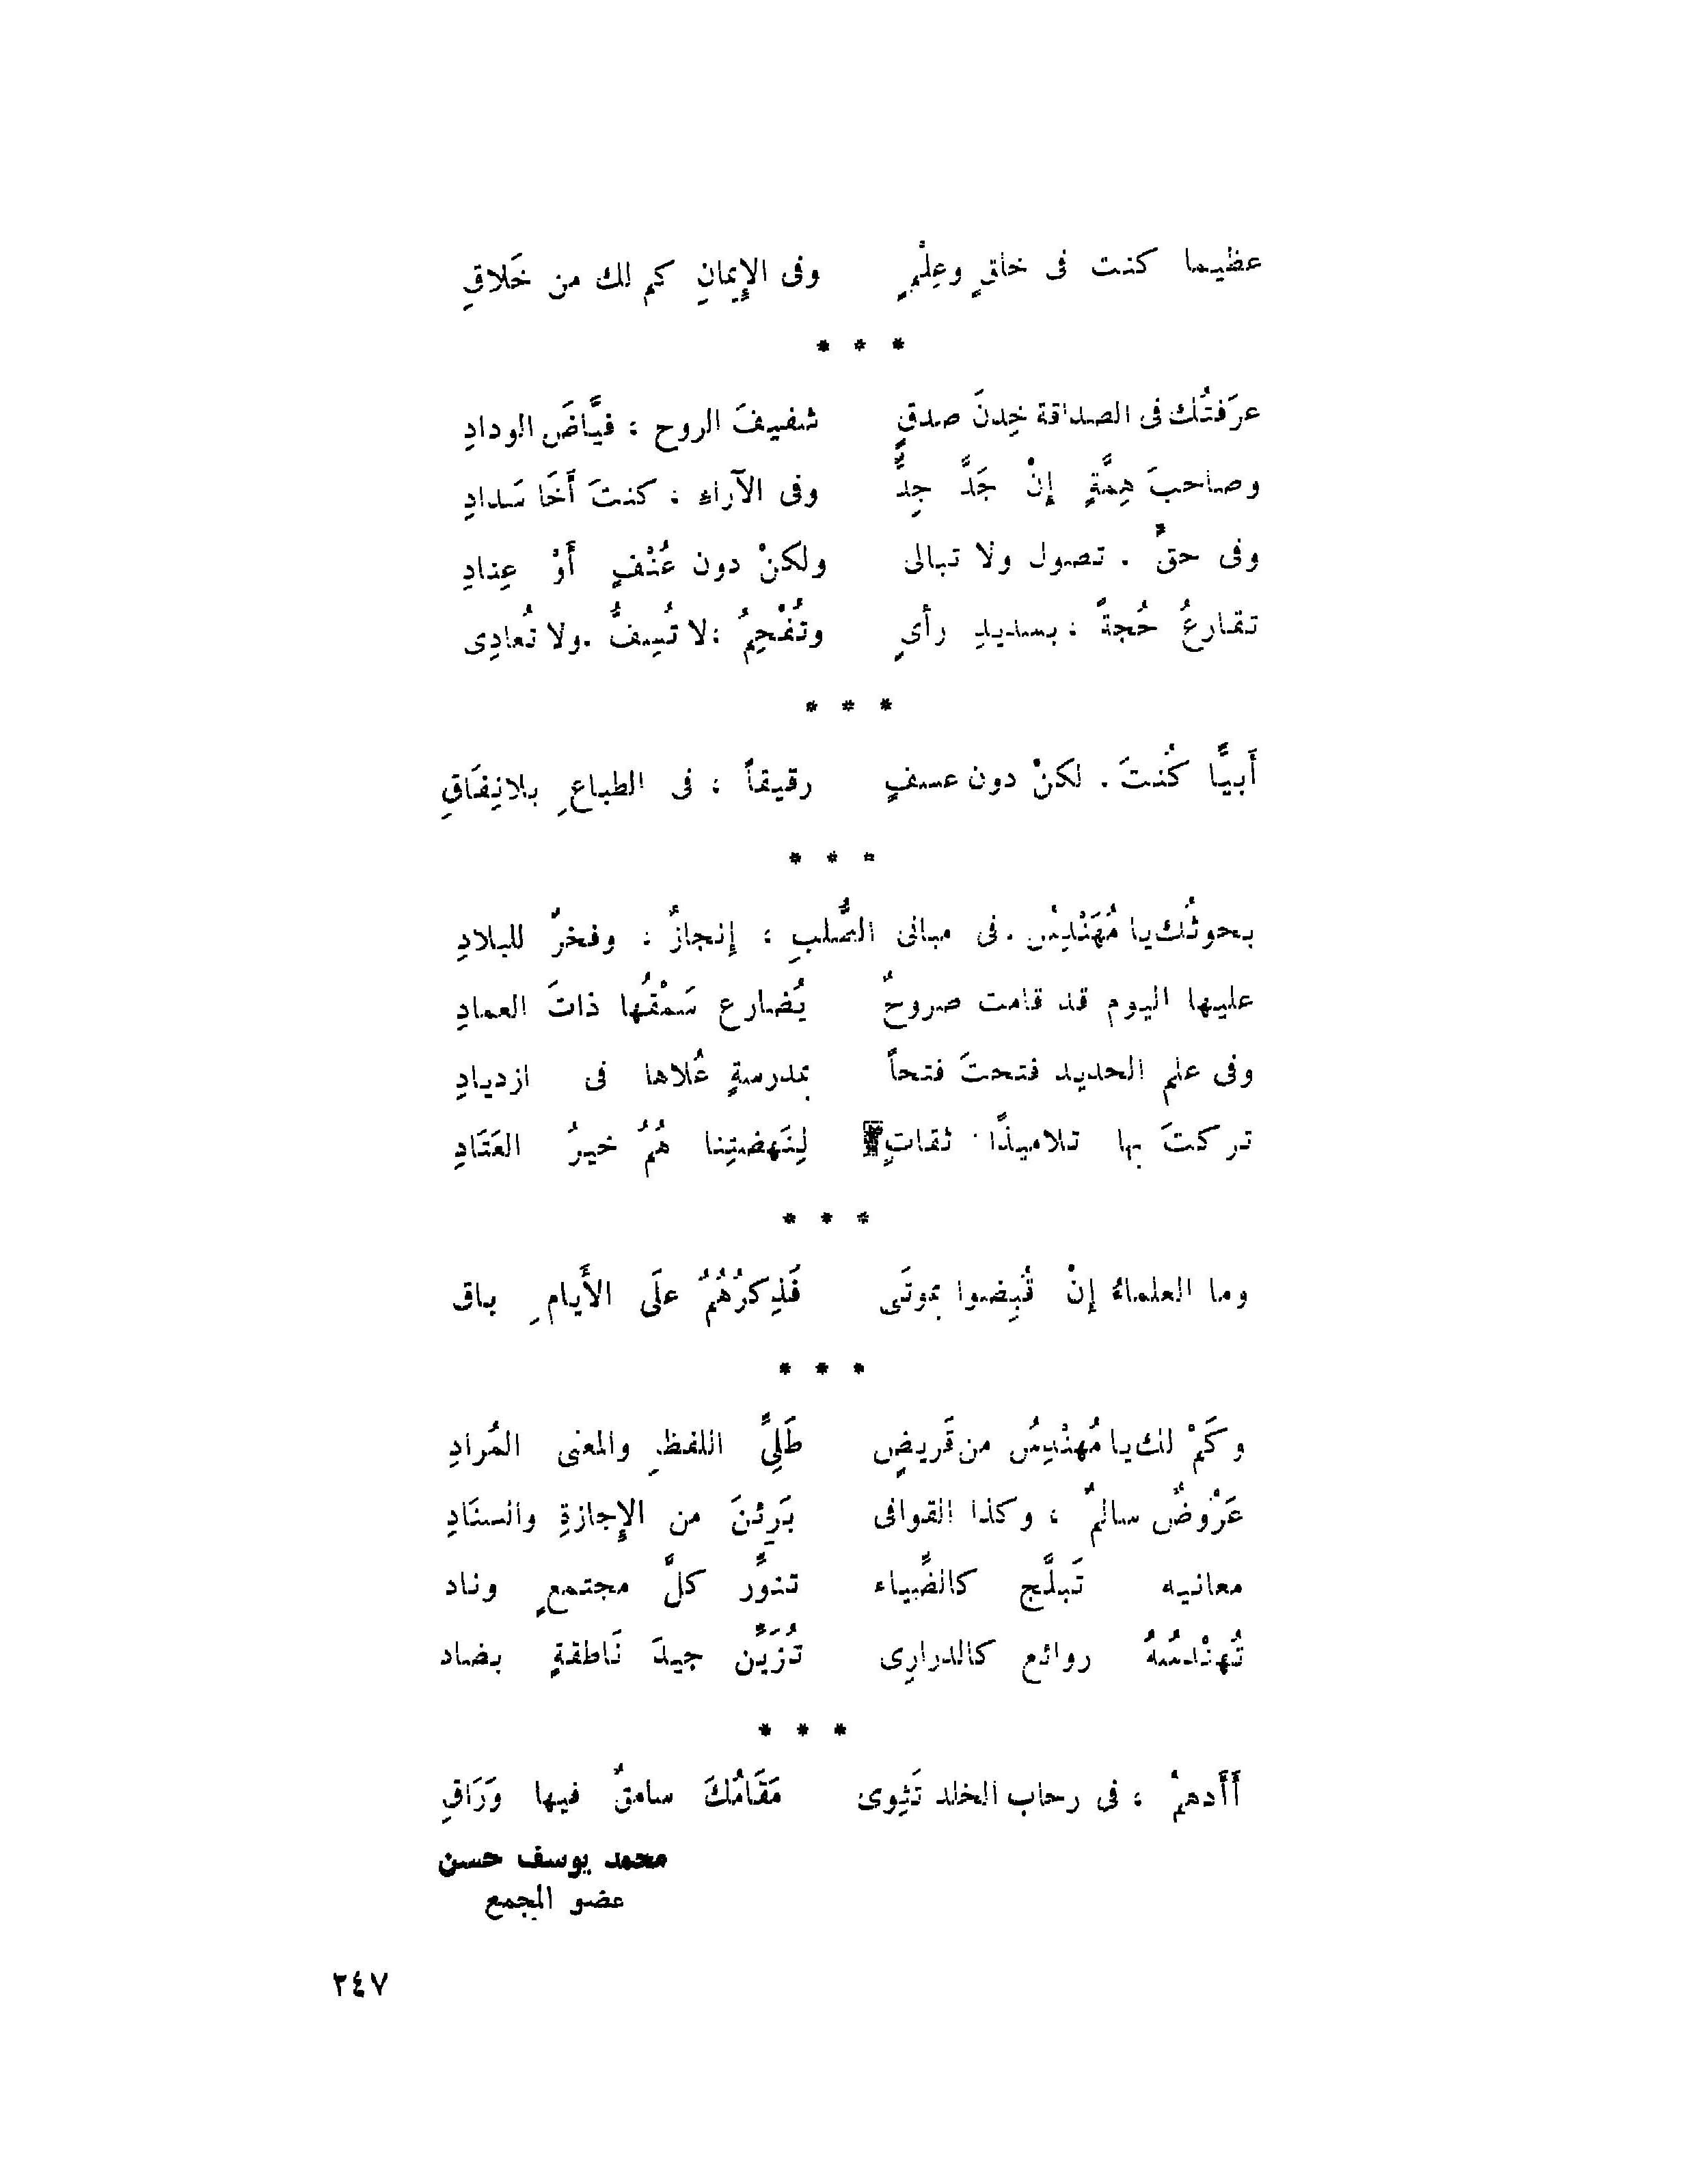 عظيما كنت فى خلقٍ وعِلْمٍ وفى الإِيمانِ كم لك من خَلاقِ
* * *
عرَفتُك فى الصداقة خِدنَ صدقٍ شفيفَ الروح ، فيَّاضَ الودادِ
وصاحبَ هِمَّةٍ إِنْ جَدَّ جِدٌّ وفى الآراءِ ، كنتَ أَخَا سَدادِ
وفى حقٍّ . تصول ولا تبالى ولكنْ دون عُنْفٍ أَوْ عِنادِ
تقارعُ حُجةً ، بسديدِ رأىٍ وتُفْحِمُ ، لا تُسِفُّ . ولا تُعادِى
* * *
أَبيًّا كُنتَ . لكنْ دون عسفٍ رقيقاً ، فى الطباعِ بلا نِفَاقِ
* * *
بحوثُك يا مُهَنْدِسُ . فى مبانى الصُّلبِ ، إنجازٌ ، وفخرٌ للبلادِ
عليها اليوم قد قامت صروحٌ يُضارع سَمْقُها ذاتَ العمادِ
وفى علم الحديد فتحتَ فتحاً بمدرسةٍ عُلاها فى ازديادِ
تركتَ بها تلاميذًا ثقاتٍ لِنَهضتِنا هُمُ خيرُ العَتَادِ
* * *
وما العلماءُ إِنْ قُبِضوا بموتَى فَذِكرُهُمُ علَى الأَيامِ باق
* * *
وكَمْ لك يا مُهنْدِسُ من قَريضٍ طَلِىِّ اللفظِ والمعنى المُرادِ
عَرُوضٌ سالمٌ ، وكذا القوافى بَرِئنَ من الإِجازةِ والسنَادِ
معانيه تَبلَّج كالضِّياء تنوِّر كلَّ مجتمعٍ وناد
تُهنْدسُهُ روائع كالدرارِى تُزَيِّن جيدَ نَاطقةٍ بضاد
* * *
أَأَدهمُ ، فى رحاب الخلد تَثِوى مَقَامُكَ سامقٌ فيها وَرَاقِ
محمد يوسف حسن
عضو المجمع
٢٤٧